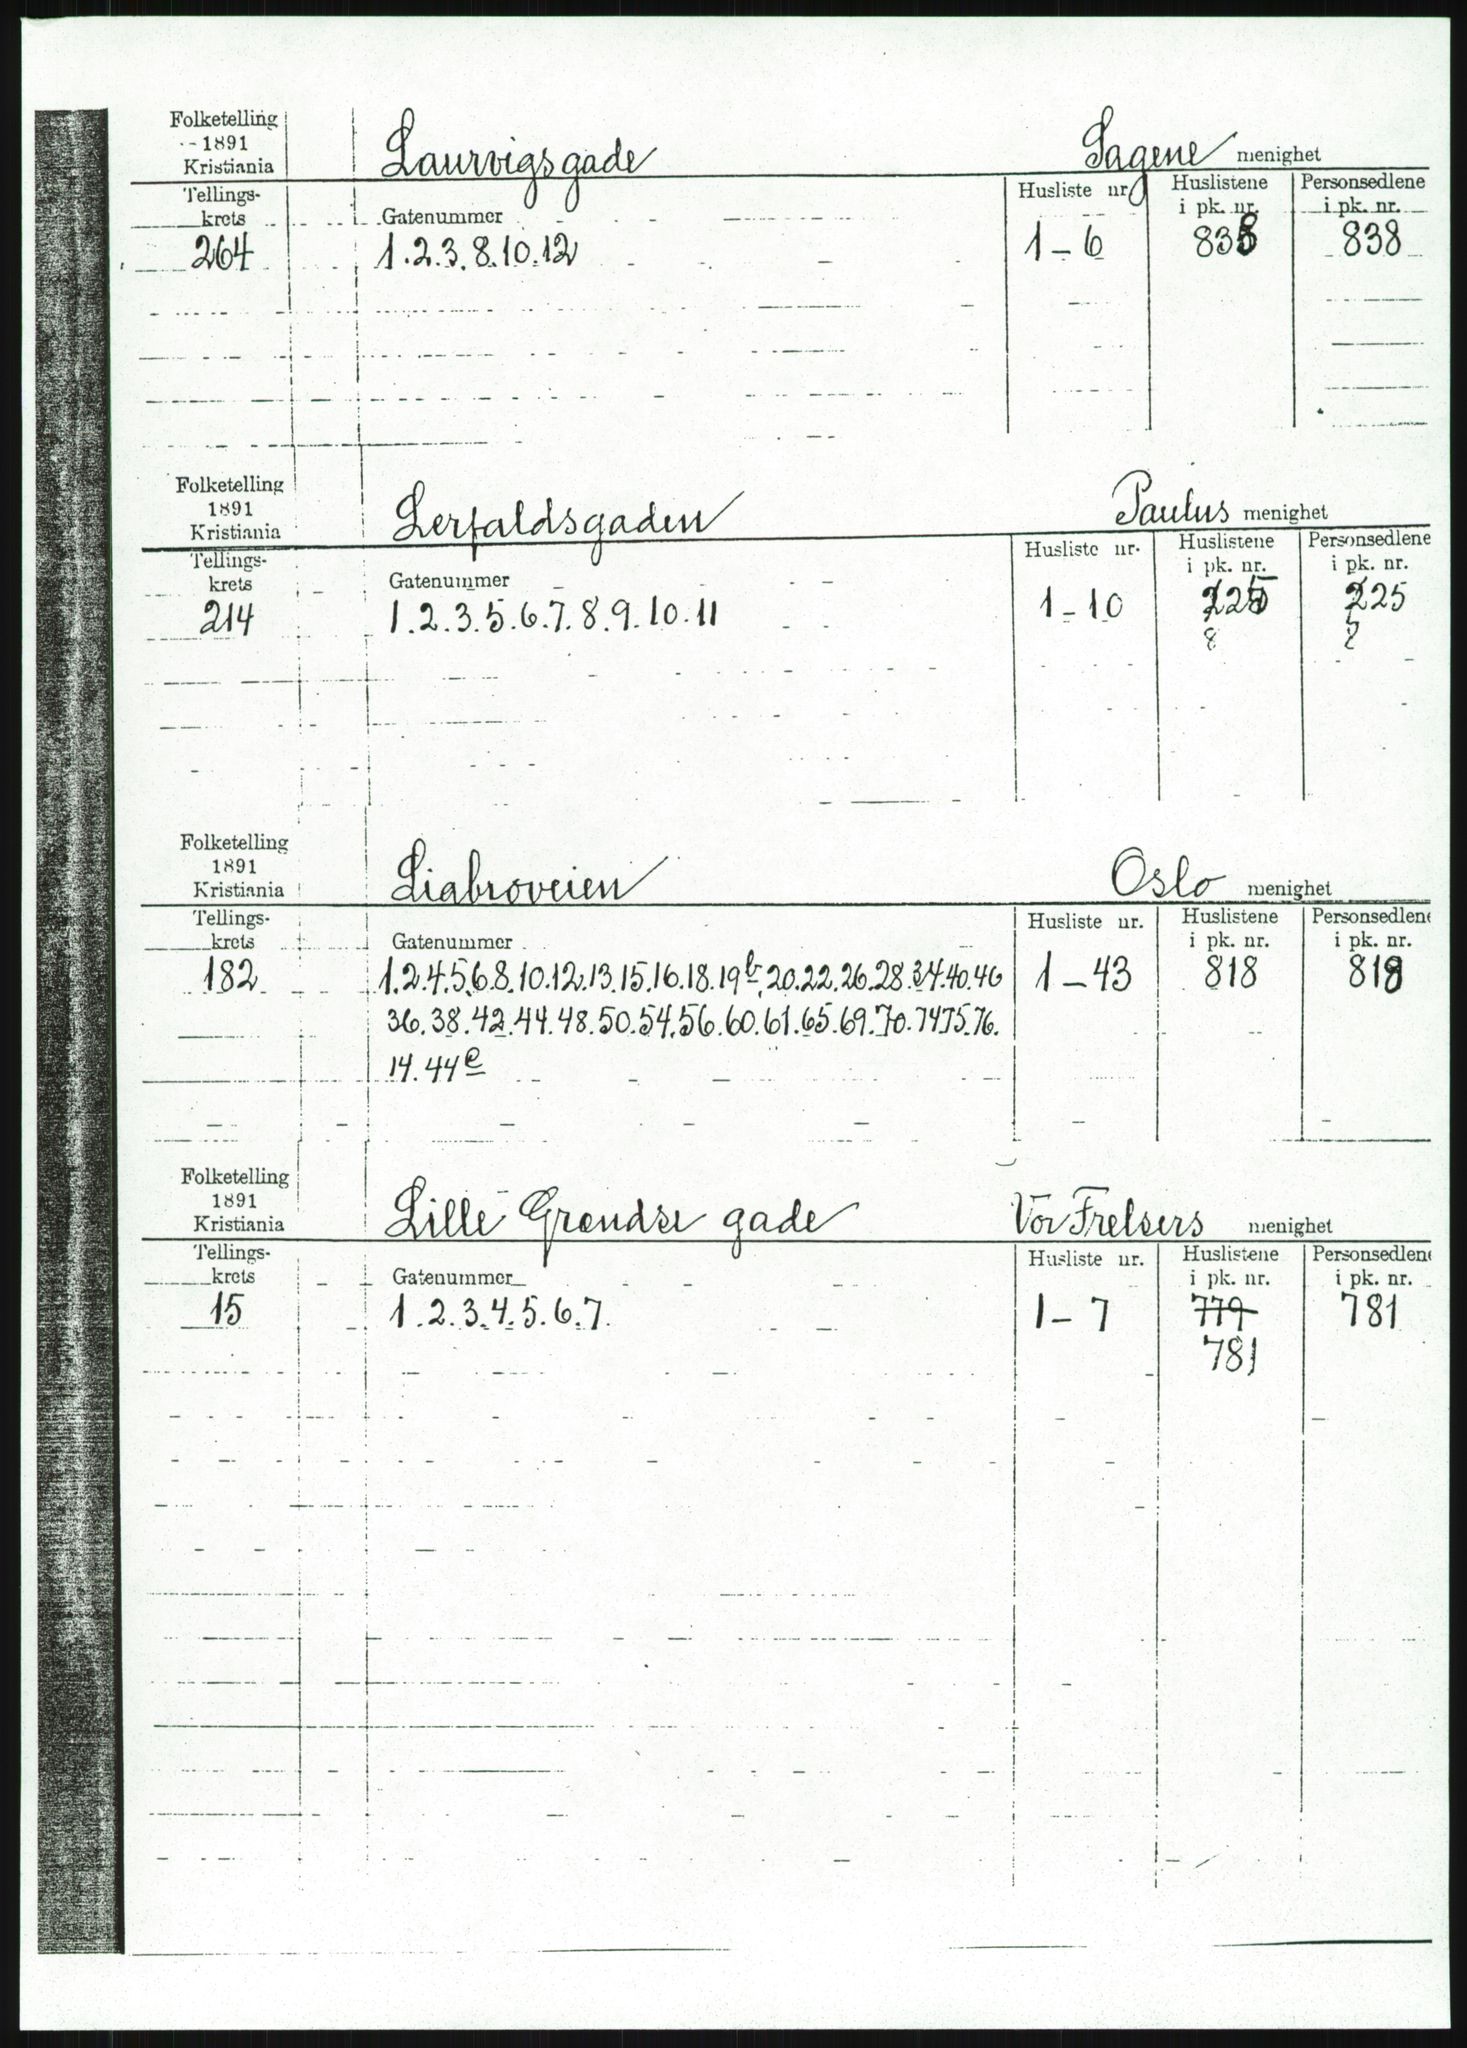 Folketelling
1891
Kristiania
Laurvigsgade
Sagene menighet
Tellings-
krets
Gatenummer
Husliste nr.
Huslistene
i pk. nr.
Personsedlene
i pk. nr.
264
1.2.3.8.10.12
1-6
838
838
Folketelling
1891
Kristiania
Lerfaldsgaden
Paulus menighet
Tellings-
krets
Gatenummer
Husliste nr.
Huslistene
i pk. nr.
Personsedlene
i pk. nr.
214
1.2.3.5.6.7.8.9.10.11
1-10
225
225
8
Folketelling
1891
Kristiania
Liabroveien
Oslo menighet
Tellings-
krets
Gatenummer
Husliste nr.
Huslistene
i pk. nr.
Personsedlene
i pk. nr.
182
1.2.4.5.6.8.10.12.13.15.16.18.19b.20.22.26.28.34.40.46
1-43
818
818
36.38.42.44.48.50.54.56.60.61.65.69.70.74.75.76.
14.44e
Folketelling
1891
Kristiania
Lille Grændse gade
Vor Frelsers menighet
Tellings-
krets
Gatenummer
Husliste nr.
Huslistene
i pk. nr.
Personsedlene
i pk. nr.
15
1.2.3.4.5.6.7.
1-7
779
781
781